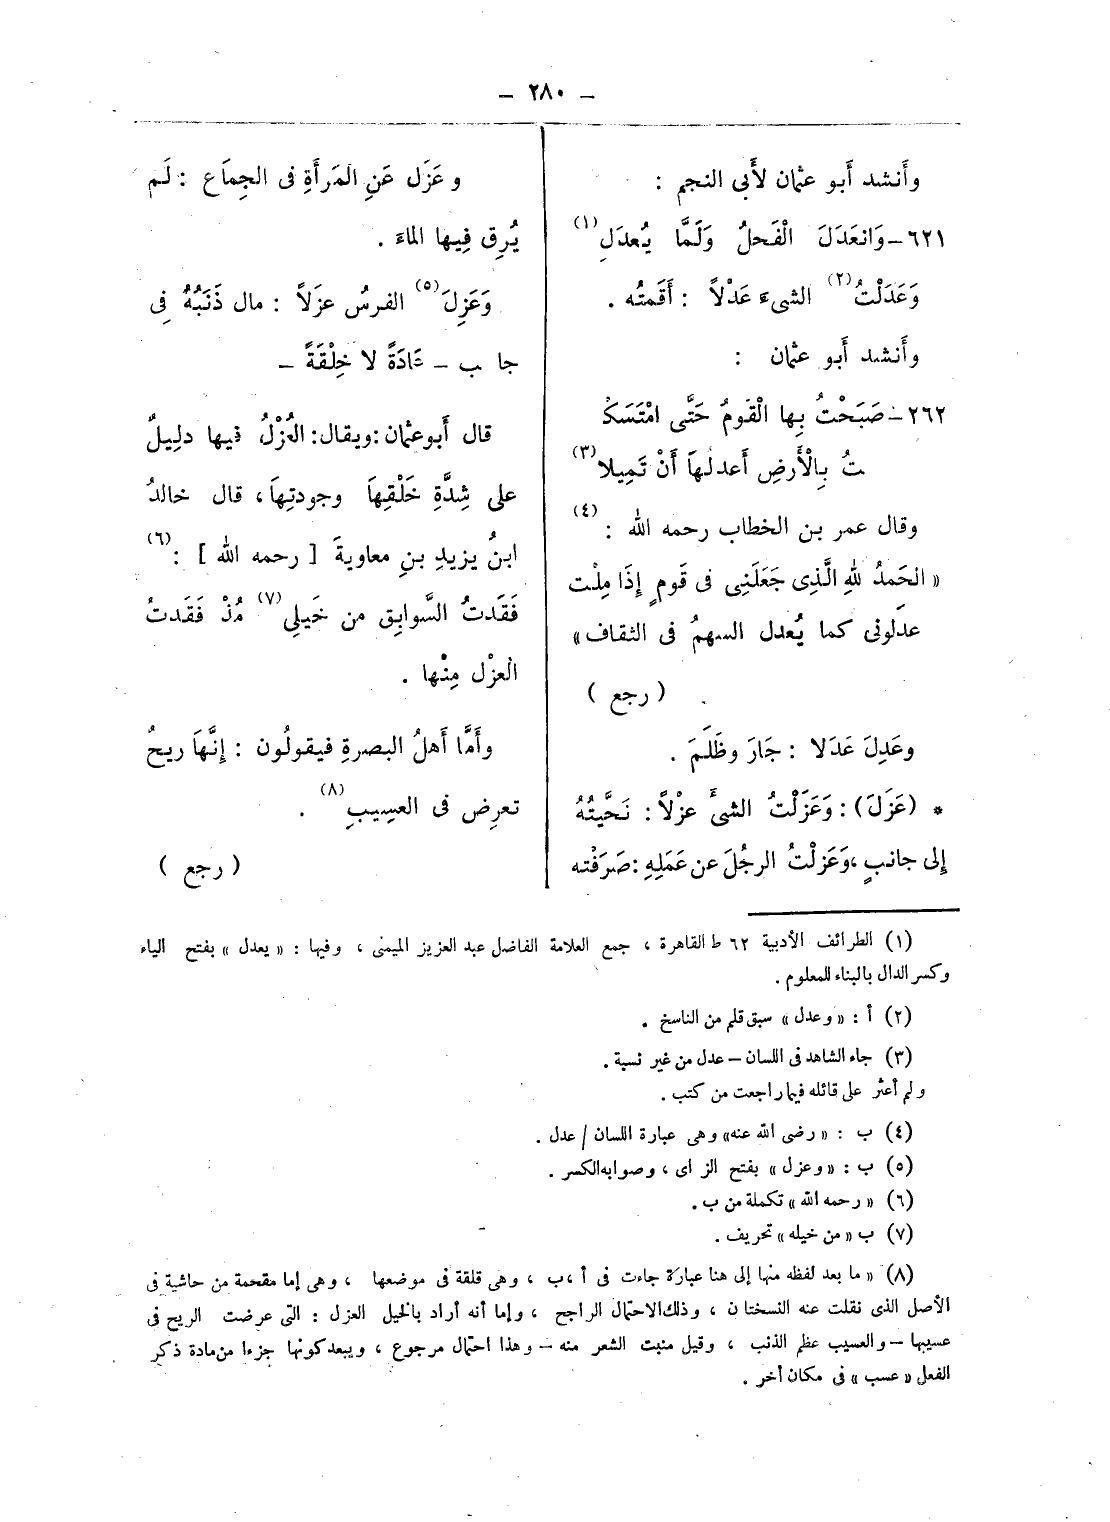 — ٢٨٠ —
وأَنشد أَبو عثمان لأَبي النجم :
٦٢١— وَانعَدَلَ الْفَحلُ وَلَمَّا يُعدَلِ (١)
وَعَدَلْتُ (٢) الشىءَ عَدْلاً : أَقَمتُه .
وأَنشد أَبو عثمان :
٢٦٢— صَبَحْتُ بِها الْقَومُ حَتَّى امْتَسَكْ
تُ بِالْأَرضِ أَعدلُهَا أَنْ تَمِيلا (٣)
وقال عمر بن الخطاب رحمه الله (٤) :
« الحَمدُ للهِ الَّذِى جَعَلَنِى فى قَومٍ إِذَا مِلْت
عدَلونى كما يُعدل السهمُ فى الثقاف »
( رجع )
وعَدِلَ عَدَلا : جَارَ وظَلَمَ .
* (عَزَلَ) : وَعَزَلْتُ الشىَٔ عزْلاً : نَحَّيتُهُ
إلى جانبٍ ، وَعَزلْتُ الرجُلَ عن عَمَلِهِ : صَرَفْته
و عَزَل عَنِ المَرأَةِ فى الجِمَاع : لَم
يُرِق فِيها الماءَ .
وَعَزِلَ (٥) الفرسُ عزَلاً : مال ذَنَبُهُ فِى
جا ب — عَادَةً لا خِلْقَةً —
قال أَبوعثمان : ويقال : العُزْلُ فيها دلِيلٌ
على شِدَّةِ خَلْقِهَا وجودتِهَا ، قال خالدُ
ابنُ يزيدِ بنِ معاويةَ [ رحمه الله ] (٦) :
فَقَدتُ السَّوابِق من خَيلِى (٧) مُذْ فَقَدتُ
العزْل مِنْها .
وأَمَّا أَهلُ البصرةِ فيقولُون : إِنَّهَا ريحٌ
تعرِض فى العسِيبِ (٨) .
( رجع )
(١) الطرائف الأدبية ٦٢ ط القاهرة ، جمع العلامة الفاضل عبد العزيز الميمنى ، وفيها : « يعدل » بفتح الياء
وكسر الدال بالبناء للمعلوم .
(٢) أ : « وعدل » سبق قلم من الناسخ .
(٣) جاء الشاهد فى اللسان — عدل من غير نسبة .
ولم أعثر على قائله فيما راجعت من كتب .
(٤) ب : « رضى الله عنه » وهى عبارة اللسان / عدل .
(٥) ب : « وعزل » بفتح الزاى ، وصوابه الكسر .
(٦) « رحمه الله » تكملة من ب .
(٧) ب « من خيله » تحريف .
(٨) « ما بعد لفظه منها إلى هنا عبارة جاءت فى أ ، ب ، وهى قلقة فى موضعها ، وهى إما مقحمة من حاشية فى
الأصل الذى نقلت عنه النسختان ، وذلك الاحتمال الراجح ، وإما أنه أراد بالخيل العزل : التى عرضت الريح فى
عسيبها — والعسيب عظم الذنب ، وقيل منبت الشعر منه — وهذا احتمال مرجوع ، ويبعد كونها جزءا من مادة ذكر
الفعل « عسب » فى مكان أخر .